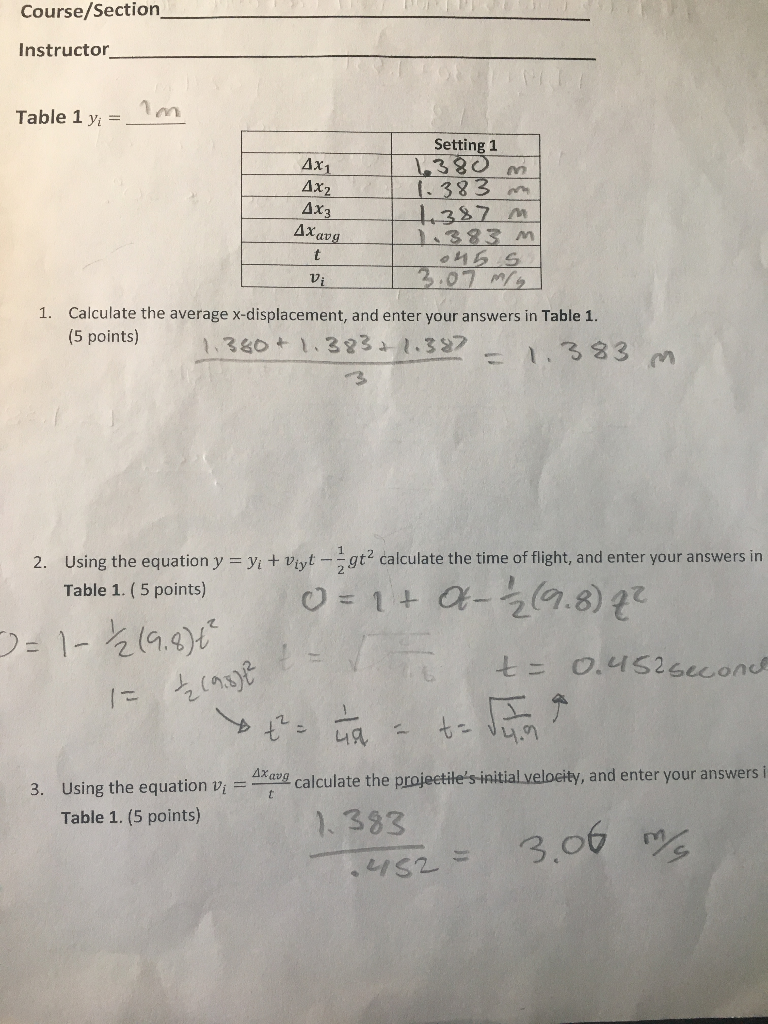 Course/Section
Instructor
Table 1 yᵢ = 1m
Setting 1
Δx₁ 1.380 m
Δx₂ 1.383 m
Δx₃ 1.387 m
Δx_avg 1.383 m
t .045 s
vᵢ 3.07 m/s
1. Calculate the average x-displacement, and enter your answers in Table 1.
(5 points)
1.380 + 1.383 + 1.387
3
= 1.383 m
2. Using the equation y = yᵢ + v_iy t − 1/2 gt² calculate the time of flight, and enter your answers in
Table 1. ( 5 points)
0 = 1 + 0t − 1/2 (9.8) t²
0 = 1 − 1/2 (9.8)t²
1 = 1/2 (9.8)t²
t = 0.452 second
t² = 1/4.9 = t = √1/4.9
3. Using the equation vᵢ = Δx_avg/t calculate the projectile's initial velocity, and enter your answers i
Table 1. (5 points)
1.383
.452
= 3.06 m/s